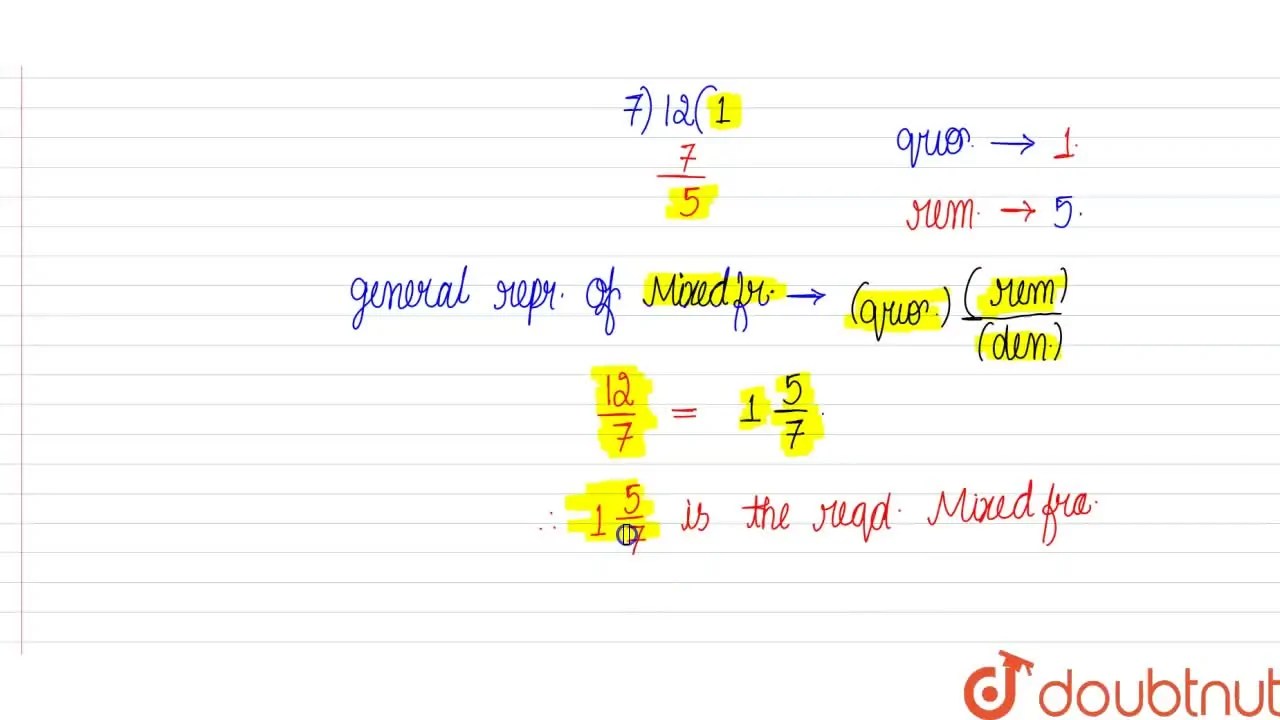 7) 12 ( 1
7
5
quo. → 1.
rem. → 5.
general repr. of Mixed fr. → (quo.) (rem) / (den.)
12/7 = 1 5/7.
∴ 1 5/7 is the reqd. Mixed fra.
doubtnut